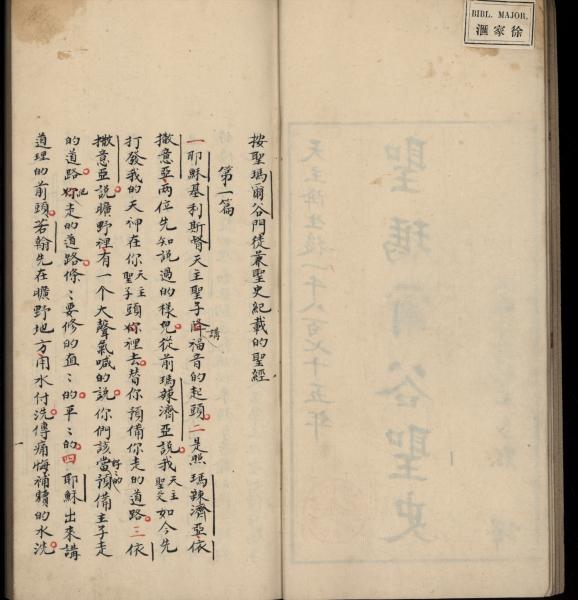 BIBL. MAJOR.
徐家滙
聖瑪爾谷聖史
天主降生後一千八百七十五年
按聖瑪爾谷門徒兼聖史紀載的聖經
第一篇
一耶穌基利斯督天主聖子降講福音的起頭二是照瑪辣濟亞依
撒意亞兩位先知說過的樣兒從前瑪辣濟亞說我天主聖父如今先
打發我的天神在你天主聖子頭裡去替你預備你走的道路三依
撒意亞說曠野裡有一个大聲氣喊的說你們該當好好的預備主子走
的道路把走的道路條〻要修的直〻的平〻的四耶穌出來講
道理的前頭若翰先在曠野地方用水付洗傳痛悔補贖的水洗